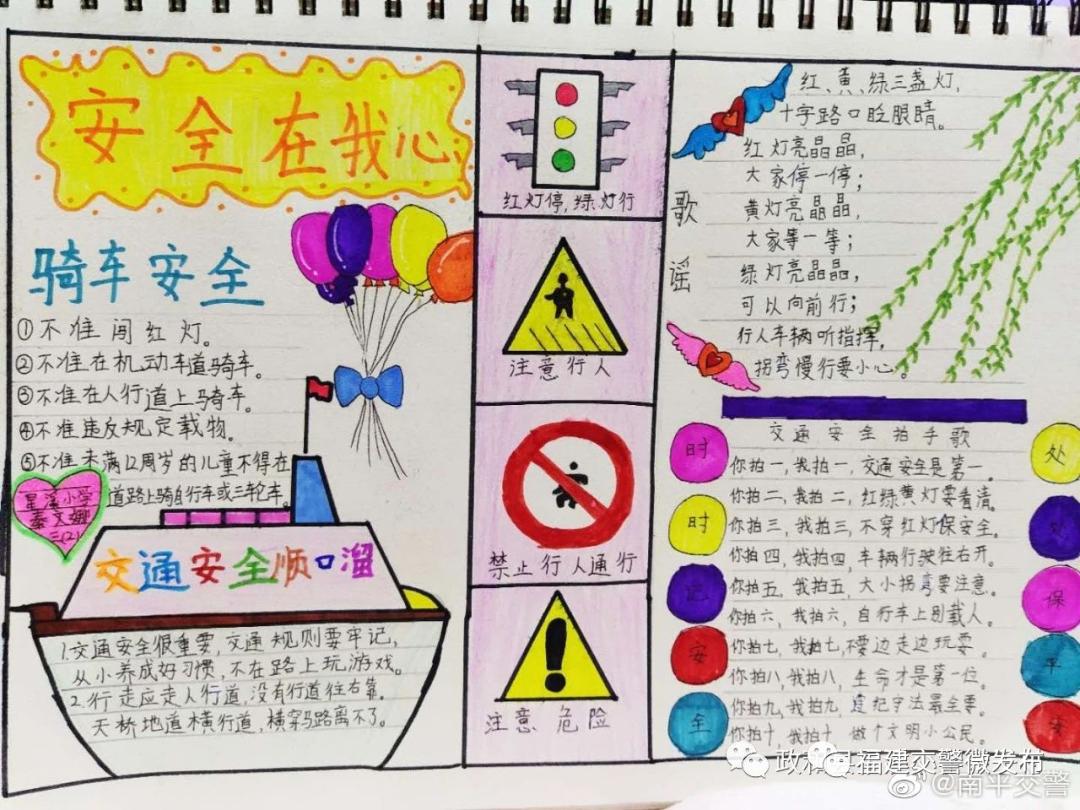 安全在我心
骑车安全
①不准闯红灯。
②不准在机动车道骑车。
③不准在人行道上骑车。
④不准违反规定载物。
⑤不准未满12周岁的儿童不得在
道路上骑自行车或三轮车。
星溪小学
三(2)
交通安全顺口溜
1.交通安全很重要,交通规则要牢记,
从小养成好习惯,不在路上玩游戏。
2.行走应走人行道,没有行道往右靠。
天桥地道横行道,横穿马路离不了。
红灯停,绿灯行
注意行人
禁止行人通行
注意危险
歌谣
红、黄、绿三盏灯,
十字路口眨眼睛。
红灯亮晶晶,
大家停一停;
黄灯亮晶晶,
大家等一等;
绿灯亮晶晶,
可以向前行;
行人车辆听指挥,
拐弯慢行要小心。
交通安全拍手歌
你拍一,我拍一,交通安全是第一。
你拍二,我拍二,红绿黄灯要看清。
你拍三,我拍三,不穿红灯保安全。
你拍四,我拍四,车辆行驶往右开。
你拍五,我拍五,大小拐弯要注意。
你拍六,我拍六,自行车上别载人。
你拍七,我拍七,不要边走边玩耍。
你拍八,我拍八,生命才是第一位。
你拍九,我拍九,遵纪守法最重要。
你拍十,我拍十,做个文明小公民。
时时记安全
处处保平安
福建交警微发布
@南平交警